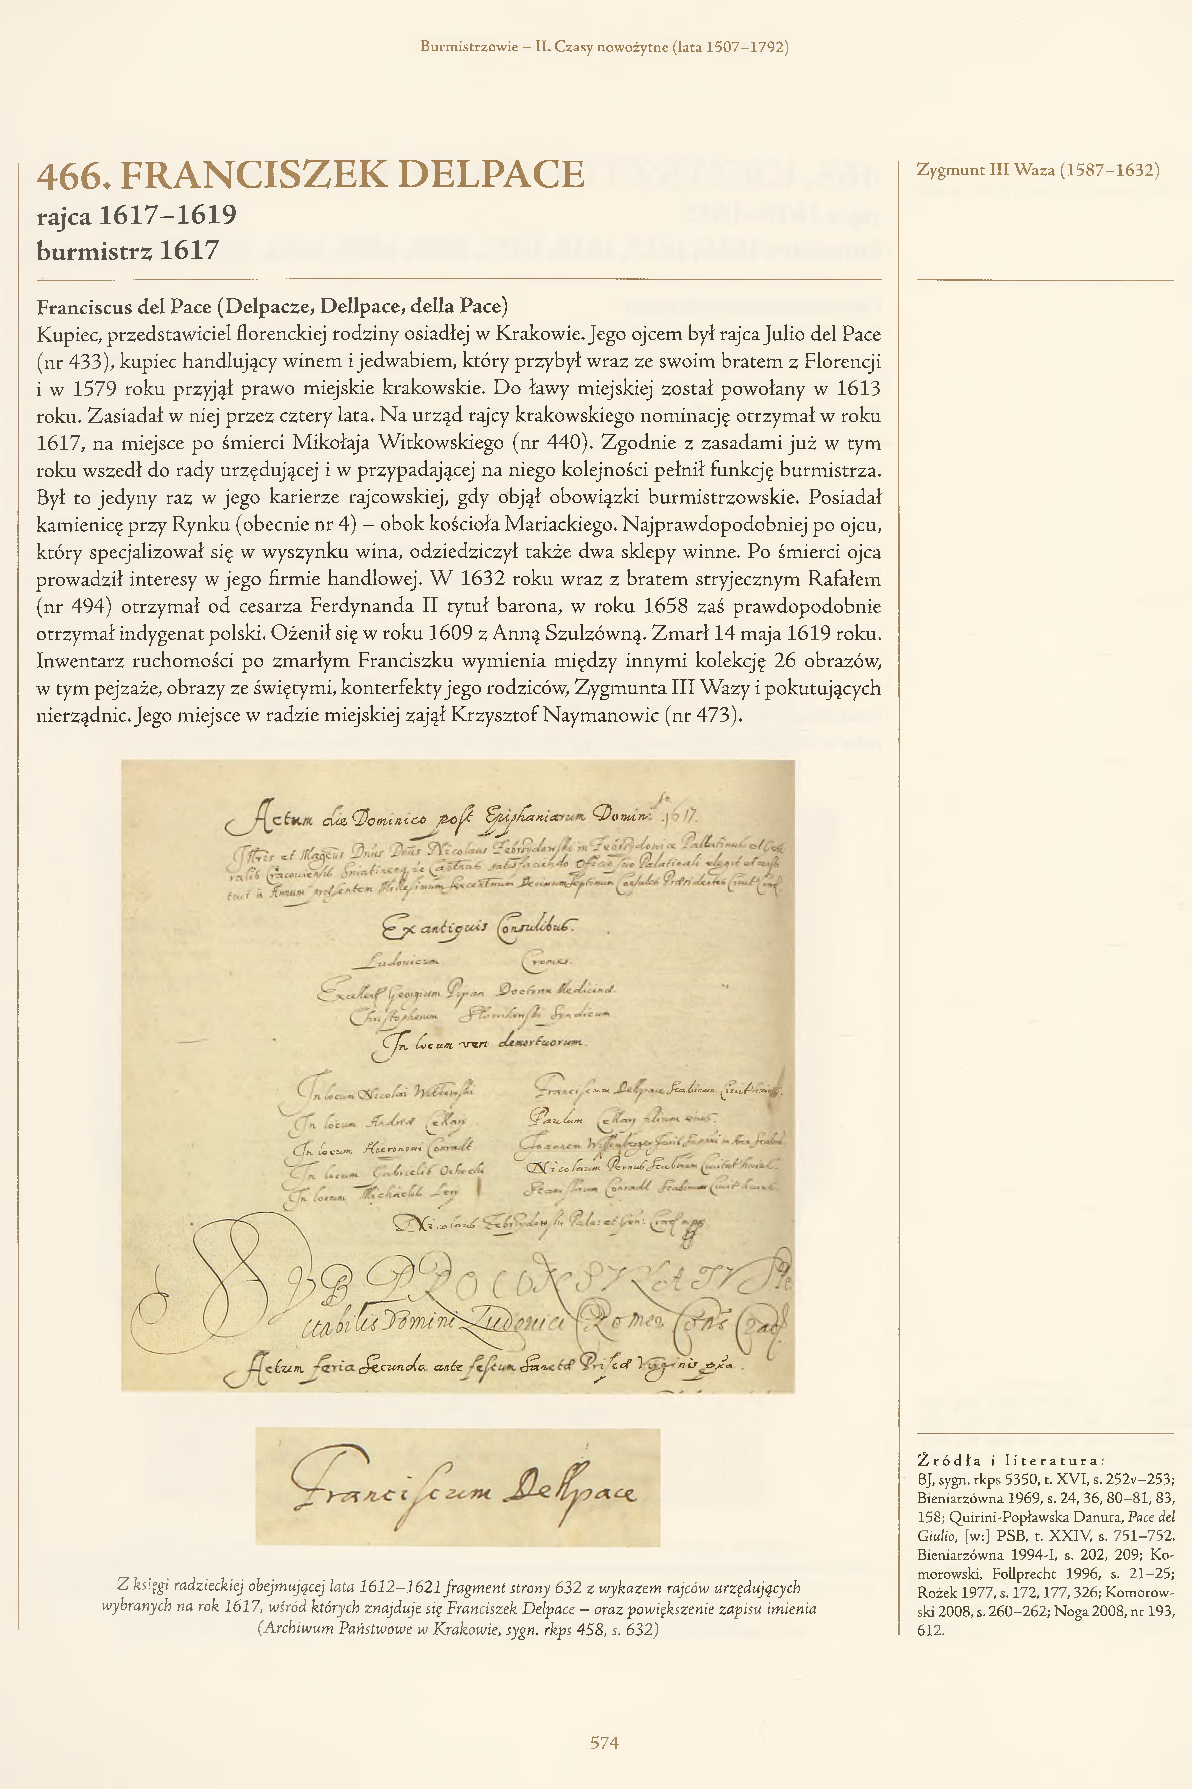 Burmistrzowie – II. Czasy nowożytne (lata 1507–1792)
466. FRANCISZEK DELPACE
rajca 1617–1619
burmistrz 1617
Zygmunt III Waza (1587–1632)
Franciscus del Pace (Delpacze, Dellpace, della Pace)
Kupiec, przedstawiciel florenckiej rodziny osiadłej w Krakowie. Jego ojcem był rajca Julio del Pace
(nr 433), kupiec handlujący winem i jedwabiem, który przybył wraz ze swoim bratem z Florencji
i w 1579 roku przyjął prawo miejskie krakowskie. Do ławy miejskiej został powołany w 1613
roku. Zasiadał w niej przez cztery lata. Na urząd rajcy krakowskiego nominację otrzymał w roku
1617, na miejsce po śmierci Mikołaja Witkowskiego (nr 440). Zgodnie z zasadami już w tym
roku wszedł do rady urzędującej i w przypadającej na niego kolejności pełnił funkcję burmistrza.
Był to jedyny raz w jego karierze rajcowskiej, gdy objął obowiązki burmistrzowskie. Posiadał
kamienicę przy Rynku (obecnie nr 4) – obok kościoła Mariackiego. Najprawdopodobniej po ojcu,
który specjalizował się w wyszynku wina, odziedziczył także dwa sklepy winne. Po śmierci ojca
prowadził interesy w jego firmie handlowej. W 1632 roku wraz z bratem stryjecznym Rafałem
(nr 494) otrzymał od cesarza Ferdynanda II tytuł barona, w roku 1658 zaś prawdopodobnie
otrzymał indygenat polski. Ożenił się w roku 1609 z Anną Szulzówną. Zmarł 14 maja 1619 roku.
Inwentarz ruchomości po zmarłym Franciszku wymienia między innymi kolekcję 26 obrazów,
w tym pejzaże, obrazy ze świętymi, konterfekty jego rodziców, Zygmunta III Wazy i pokutujących
nierządnic. Jego miejsce w radzie miejskiej zajął Krzysztof Naymanowic (nr 473).
Actum die Dominico post Epiphaniarum Domini 1617.
Ex antiquis Consulibus.
Ludovicum
Georgium Pipan Doctorem Medicinae
Christophorum Syndicum
In locum vero demortuorum.
In locum Nicolai Witkowski Franciscum Dellpace
In locum Andreae Cellari Paulum Cellary filium eius.
In locum Hieronymi Conradt Joannem
In locum Gabrielis Nicolaum Pernus
In locum Michaelis Conradt
SVB PROCONSVLATV
Domini Ludovici
Actum feria Secunda ante festum Sanctae Priscae Virginis
Franciscum Dellpace
Z księgi radzieckiej obejmującej lata 1612–1621 fragment strony 632 z wykazem rajców urzędujących
wybranych na rok 1617, wśród których znajduje się Franciszek Delpace – oraz powiększenie zapisu imienia
(Archiwum Państwowe w Krakowie, sygn. rkps 458, s. 632)
Źródła i literatura:
BJ, sygn. rkps 5350, t. XVI, s. 252v–253;
Bieniarzówna 1969, s. 24, 36, 80–81, 83,
158; Quirini-Popławska Danuta, Pace del
Giulio, [w:] PSB, t. XXIV, s. 751–752.
Bieniarzówna 1994-I, s. 202, 209; Ko-
morowski, Follprecht 1996, s. 21–25;
Rożek 1977, s. 172, 177, 326; Komorow-
ski 2008, s. 260–262; Noga 2008, nr 193,
612.
574